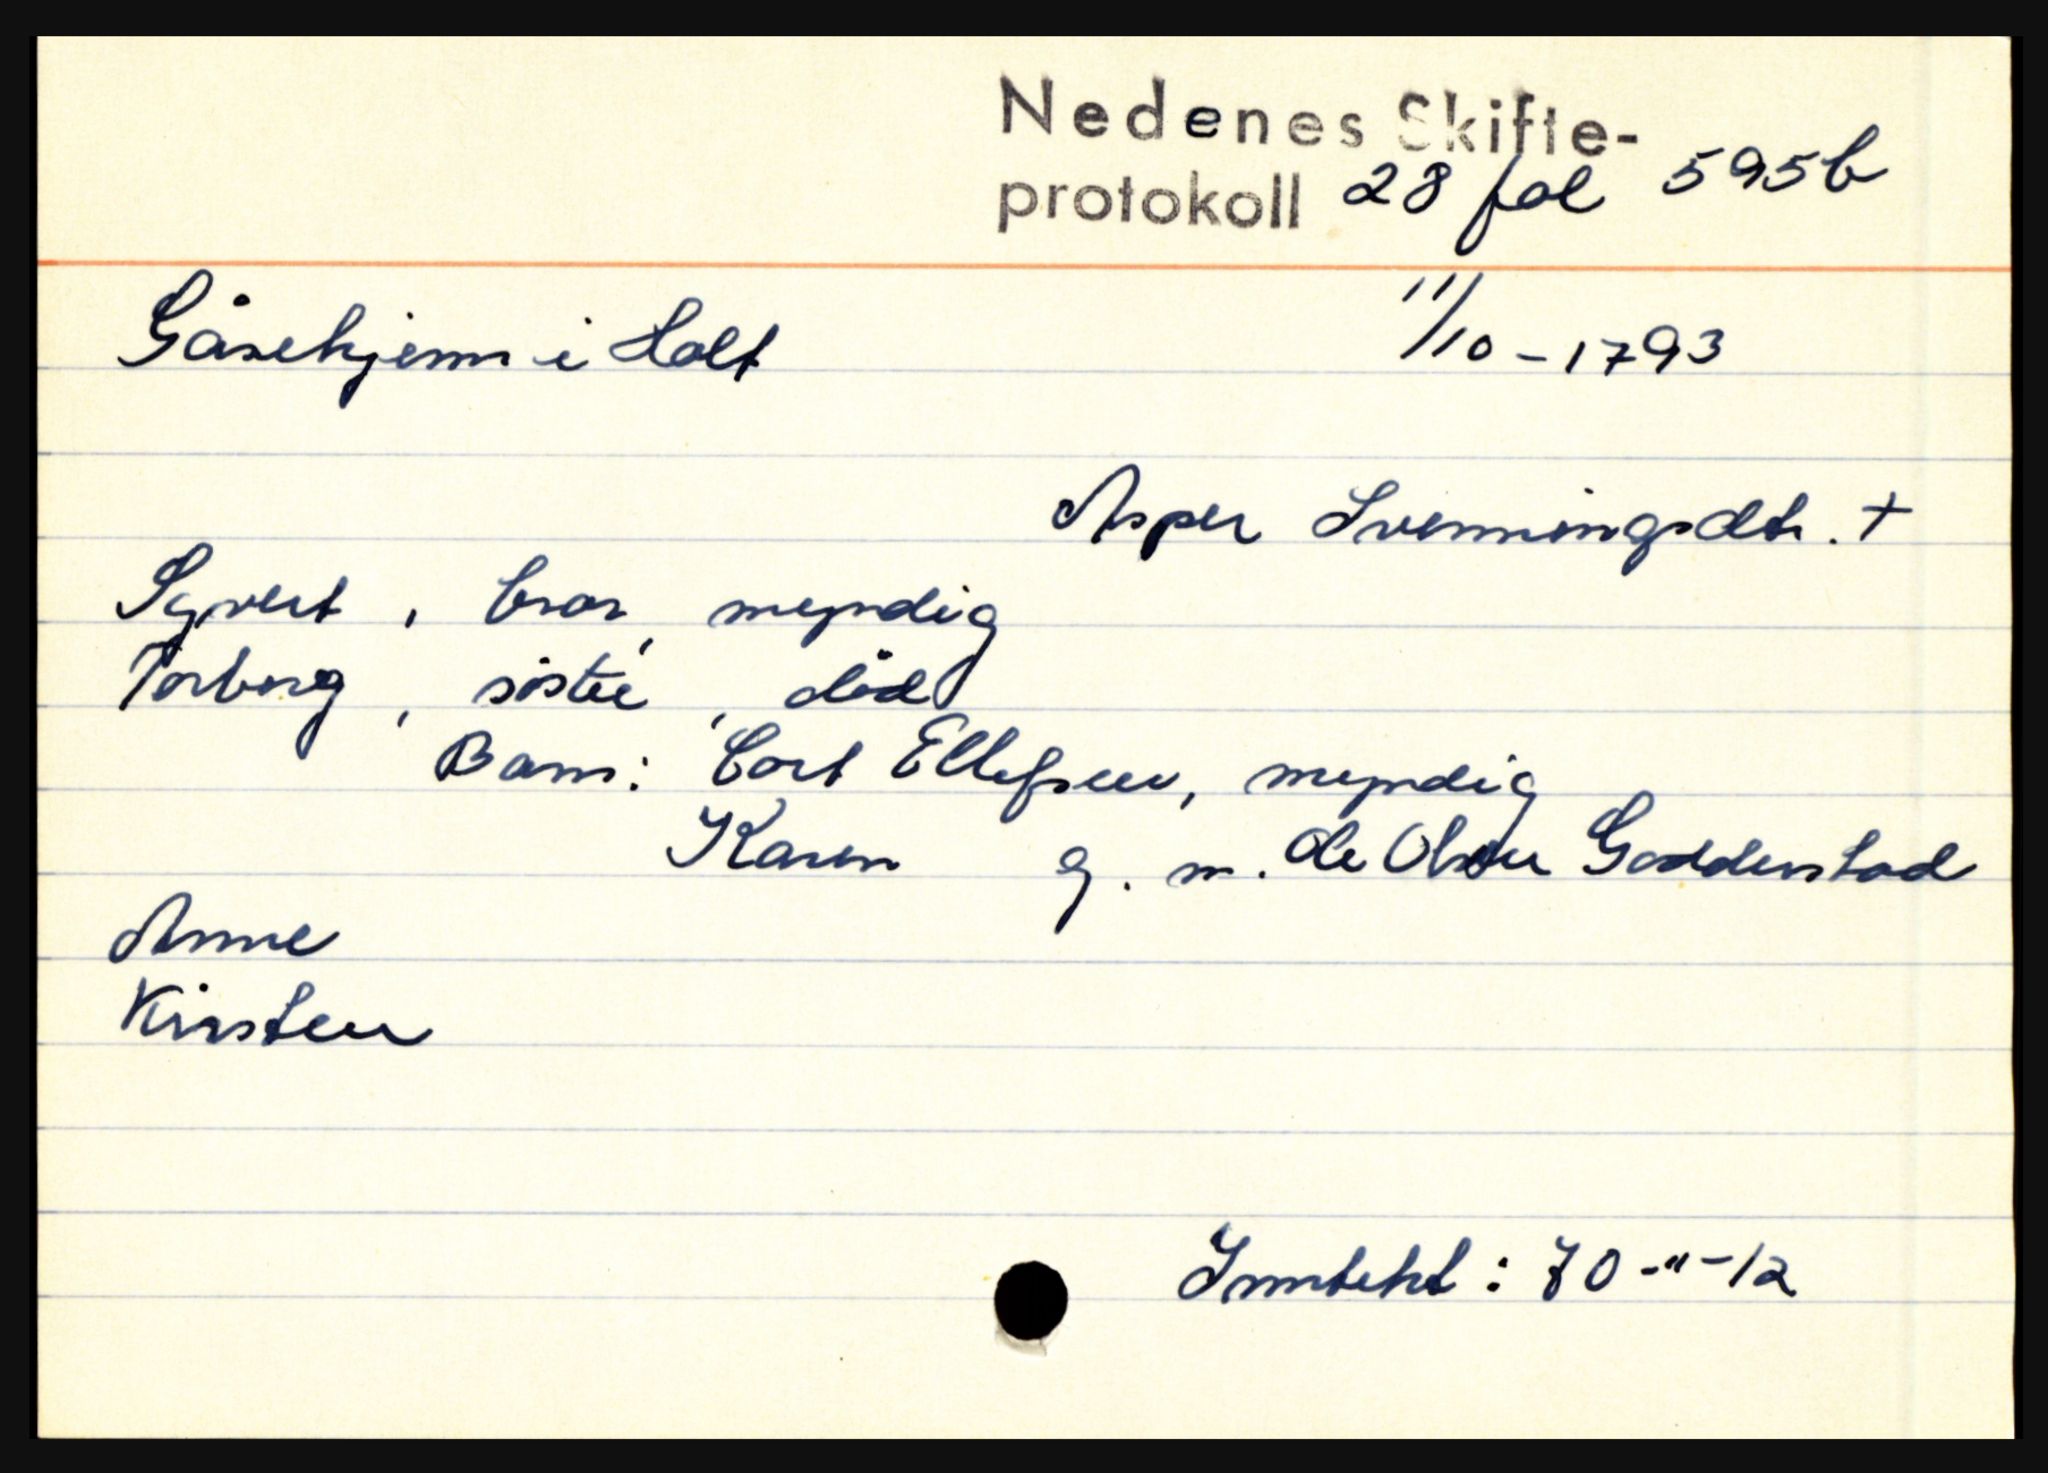 Nedenes Skifte-
protokoll 28 fol 595b
Gåsekjenn i Holt 11/10 - 1793
Asper Svenningsdtr. +
Syvert, bror, myndig
Torborg, søster, død
Barn: Cort Ellefsen, myndig
Karen g. m. Ole Olsen Goddenstad
Anne
Kirsten
Inntekt: 70-"-12